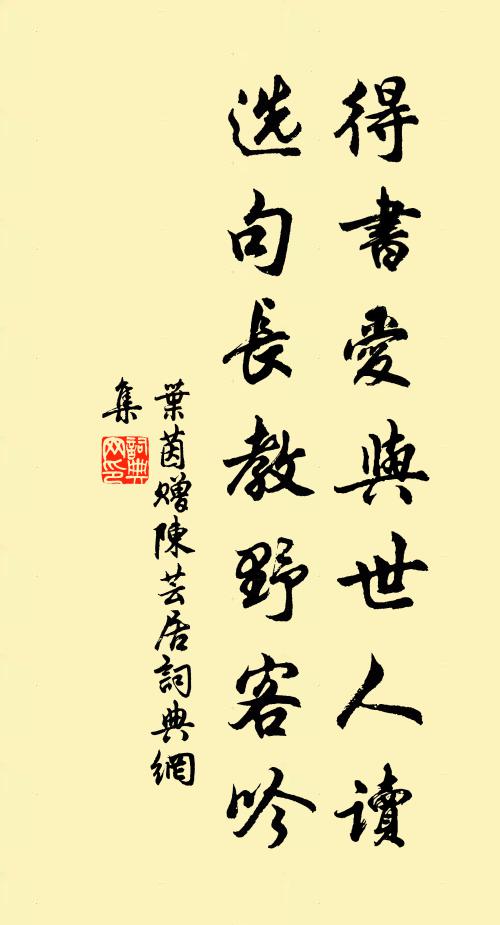 得書愛與世人讀
选句長教野客吟
葉茵贈陳芸居詞典網
集
詞典网印